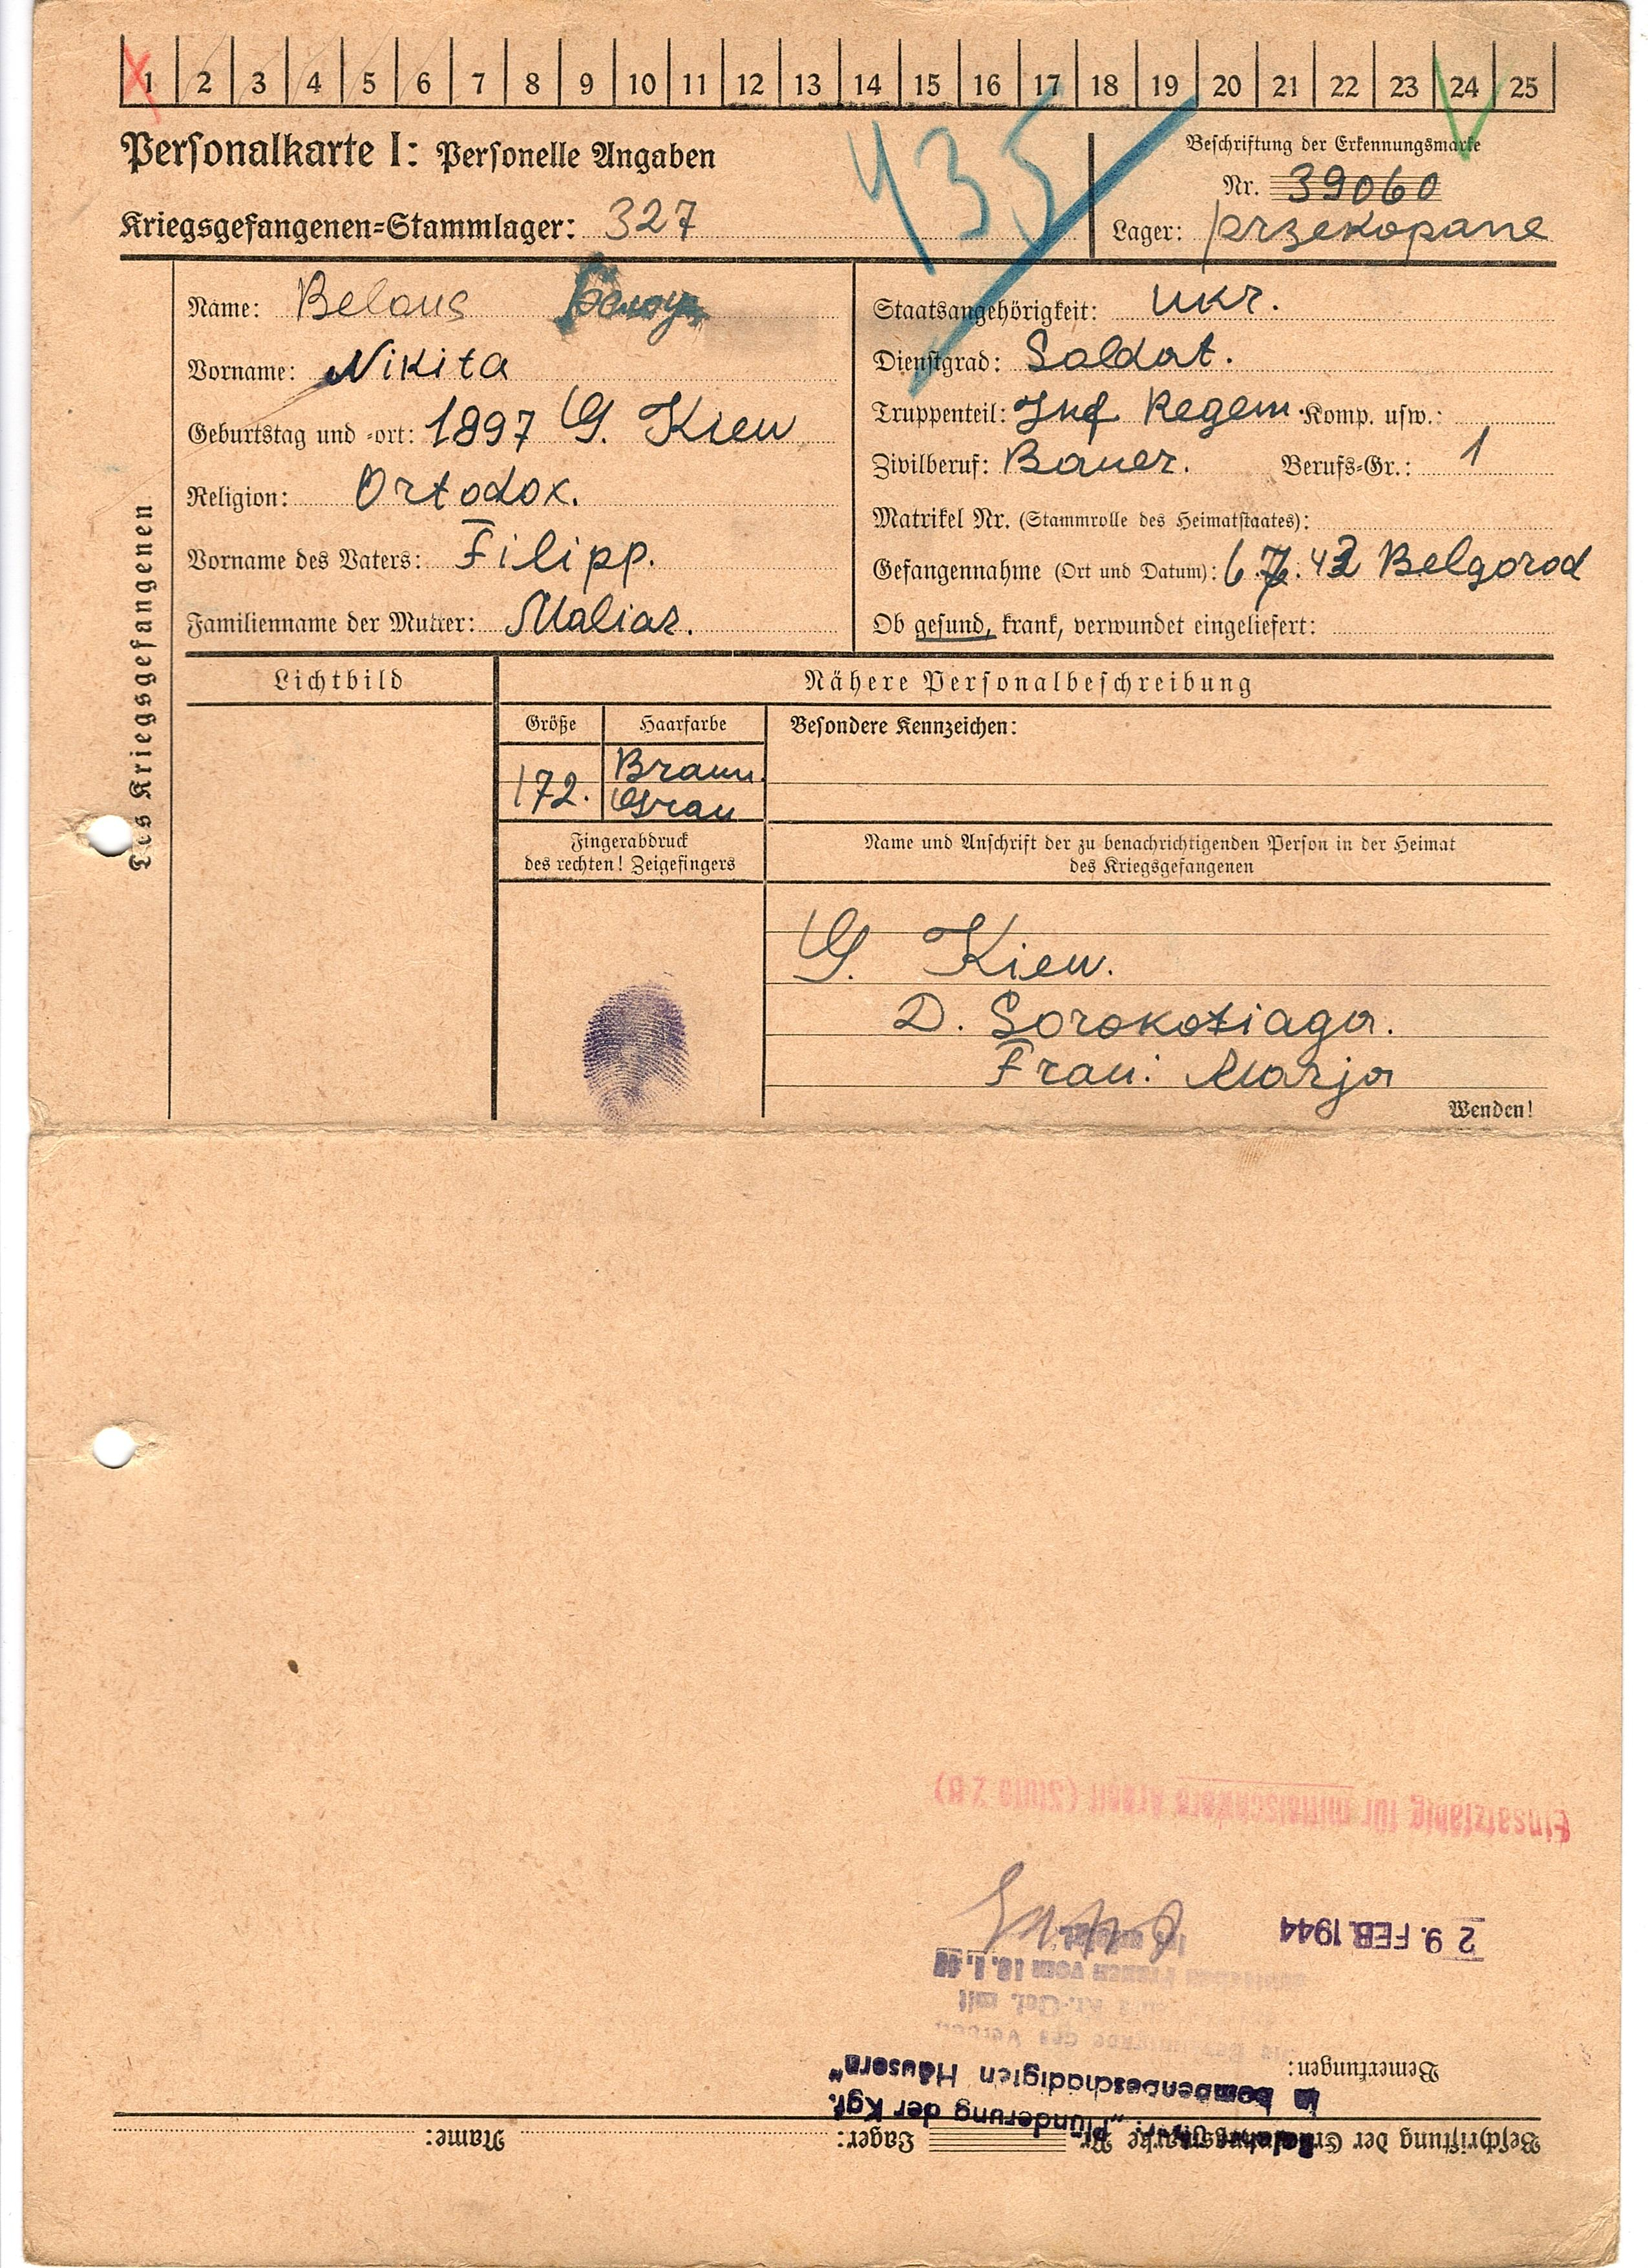 1 2 3 4 5 6 7 8 9 10 11 12 13 14 15 16 17 18 19 20 21 22 23 24 25
Personalkarte I: Personelle Angaben
435
Beschriftung der Erkennungsmarke
Nr. 39060
Kriegsgefangenen-Stammlager: 327
Lager: Przekopane
Des Kriegsgefangenen
Name: Belous
Vorname: Nikita
Geburtstag und -ort: 1897 G. Kiew
Religion: Ortodox.
Vorname des Vaters: Filipp.
Familienname der Mutter: Maliar.
Staatsangehörigkeit: Ukr.
Dienstgrad: Soldat.
Truppenteil: Inf Regem. Komp. usw.:
Zivilberuf: Bauer. Berufs-Gr.: 1
Matrikel Nr. (Stammrolle des Heimatstaates):
Gefangennahme (Ort und Datum): 6.7.43 Belgorod
Ob gesund, krank, verwundet eingeliefert:
Lichtbild
Nähere Personalbeschreibung
Größe
Haarfarbe
Besondere Kennzeichen:
172.
Braun.
Grau
Fingerabdruck
des rechten! Zeigefingers
Name und Anschrift der zu benachrichtigenden Person in der Heimat
des Kriegsgefangenen
G. Kiew.
D. Sorokotiaga.
Frau: Marja
Wenden!
Beschriftung der Erkennungsmarke Nr. Lager: Name:
"Plünderung der Kgf.
in bombenbeschädigten Häusern"
Bemerkungen:
29. FEB. 1944
Einsatzfähig für mittelschwere Arbeit (Stufe 2 B)